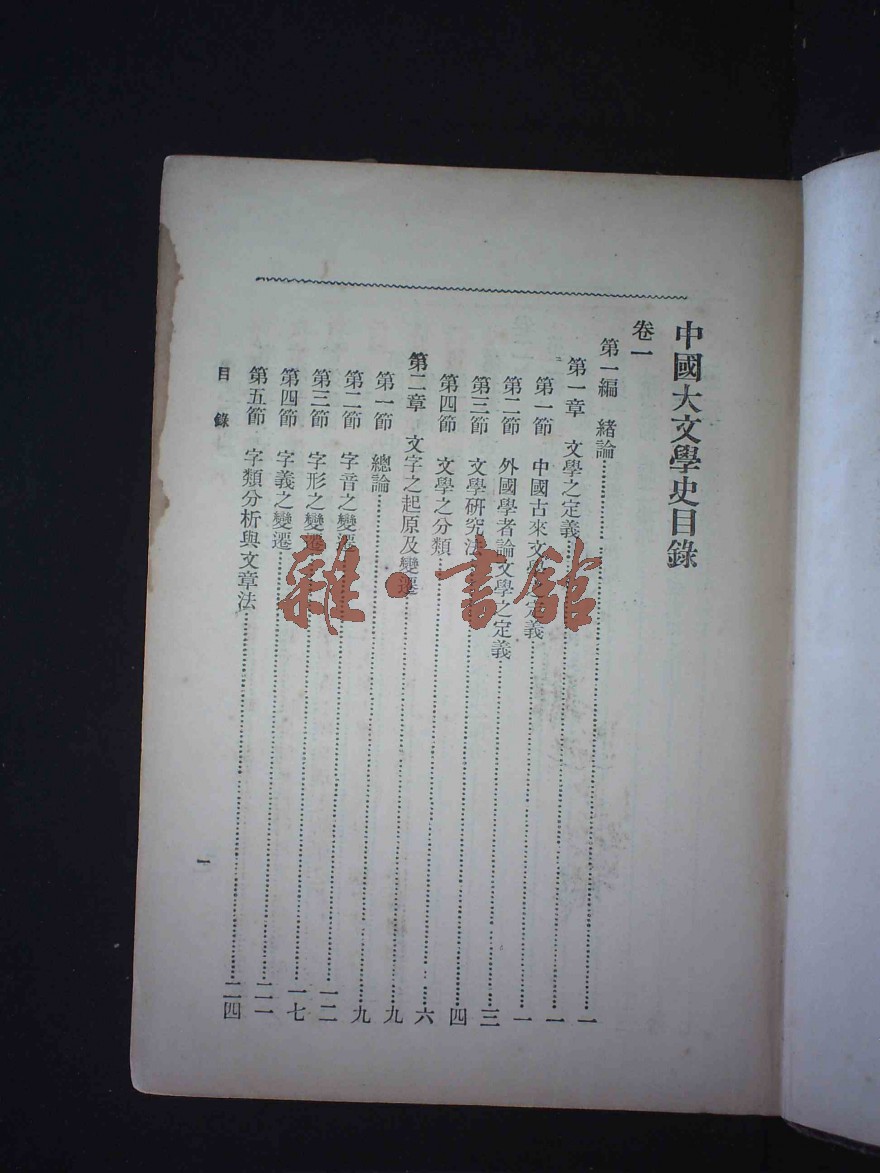 中國大文學史目錄
卷一
第一編 緒論……一
第一章 文學之定義……一
第一節 中國古來文學之定義……一
第二節 外國學者論文學之定義……三
第三節 文學研究法……四
第四節 文學之分類……六
第二章 文字之起原及變遷……九
第一節 總論……九
第二節 字音之變遷……一二
第三節 字形之變遷……一七
第四節 字義之變遷……二一
第五節 字類分析與文章法……二四
目錄
一
雜·書館